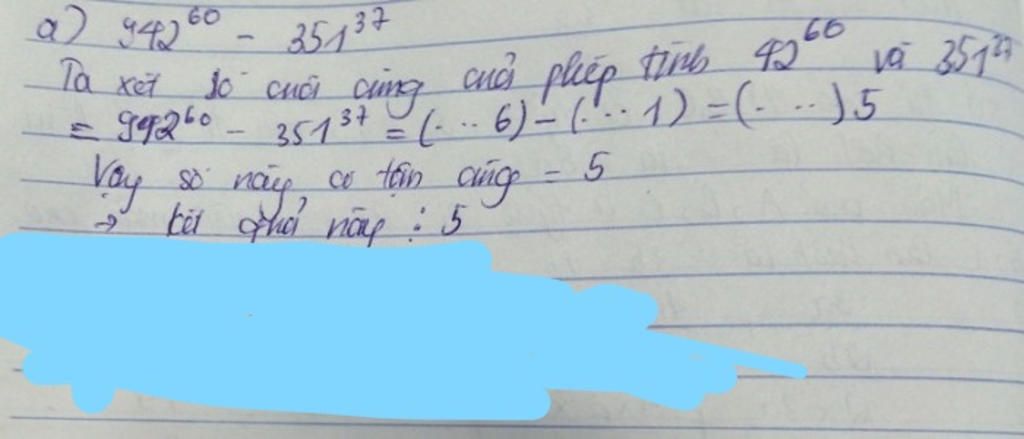 a) 942⁶⁰ - 351³⁷
Ta xét số cuối cùng cuả phép tính 42⁶⁰ và 351³⁷
= 942⁶⁰ - 351³⁷ = (... 6) - (... 1) = (...).5
Vậy số này có tận cùng = 5
→ kết quả này ⋮ 5